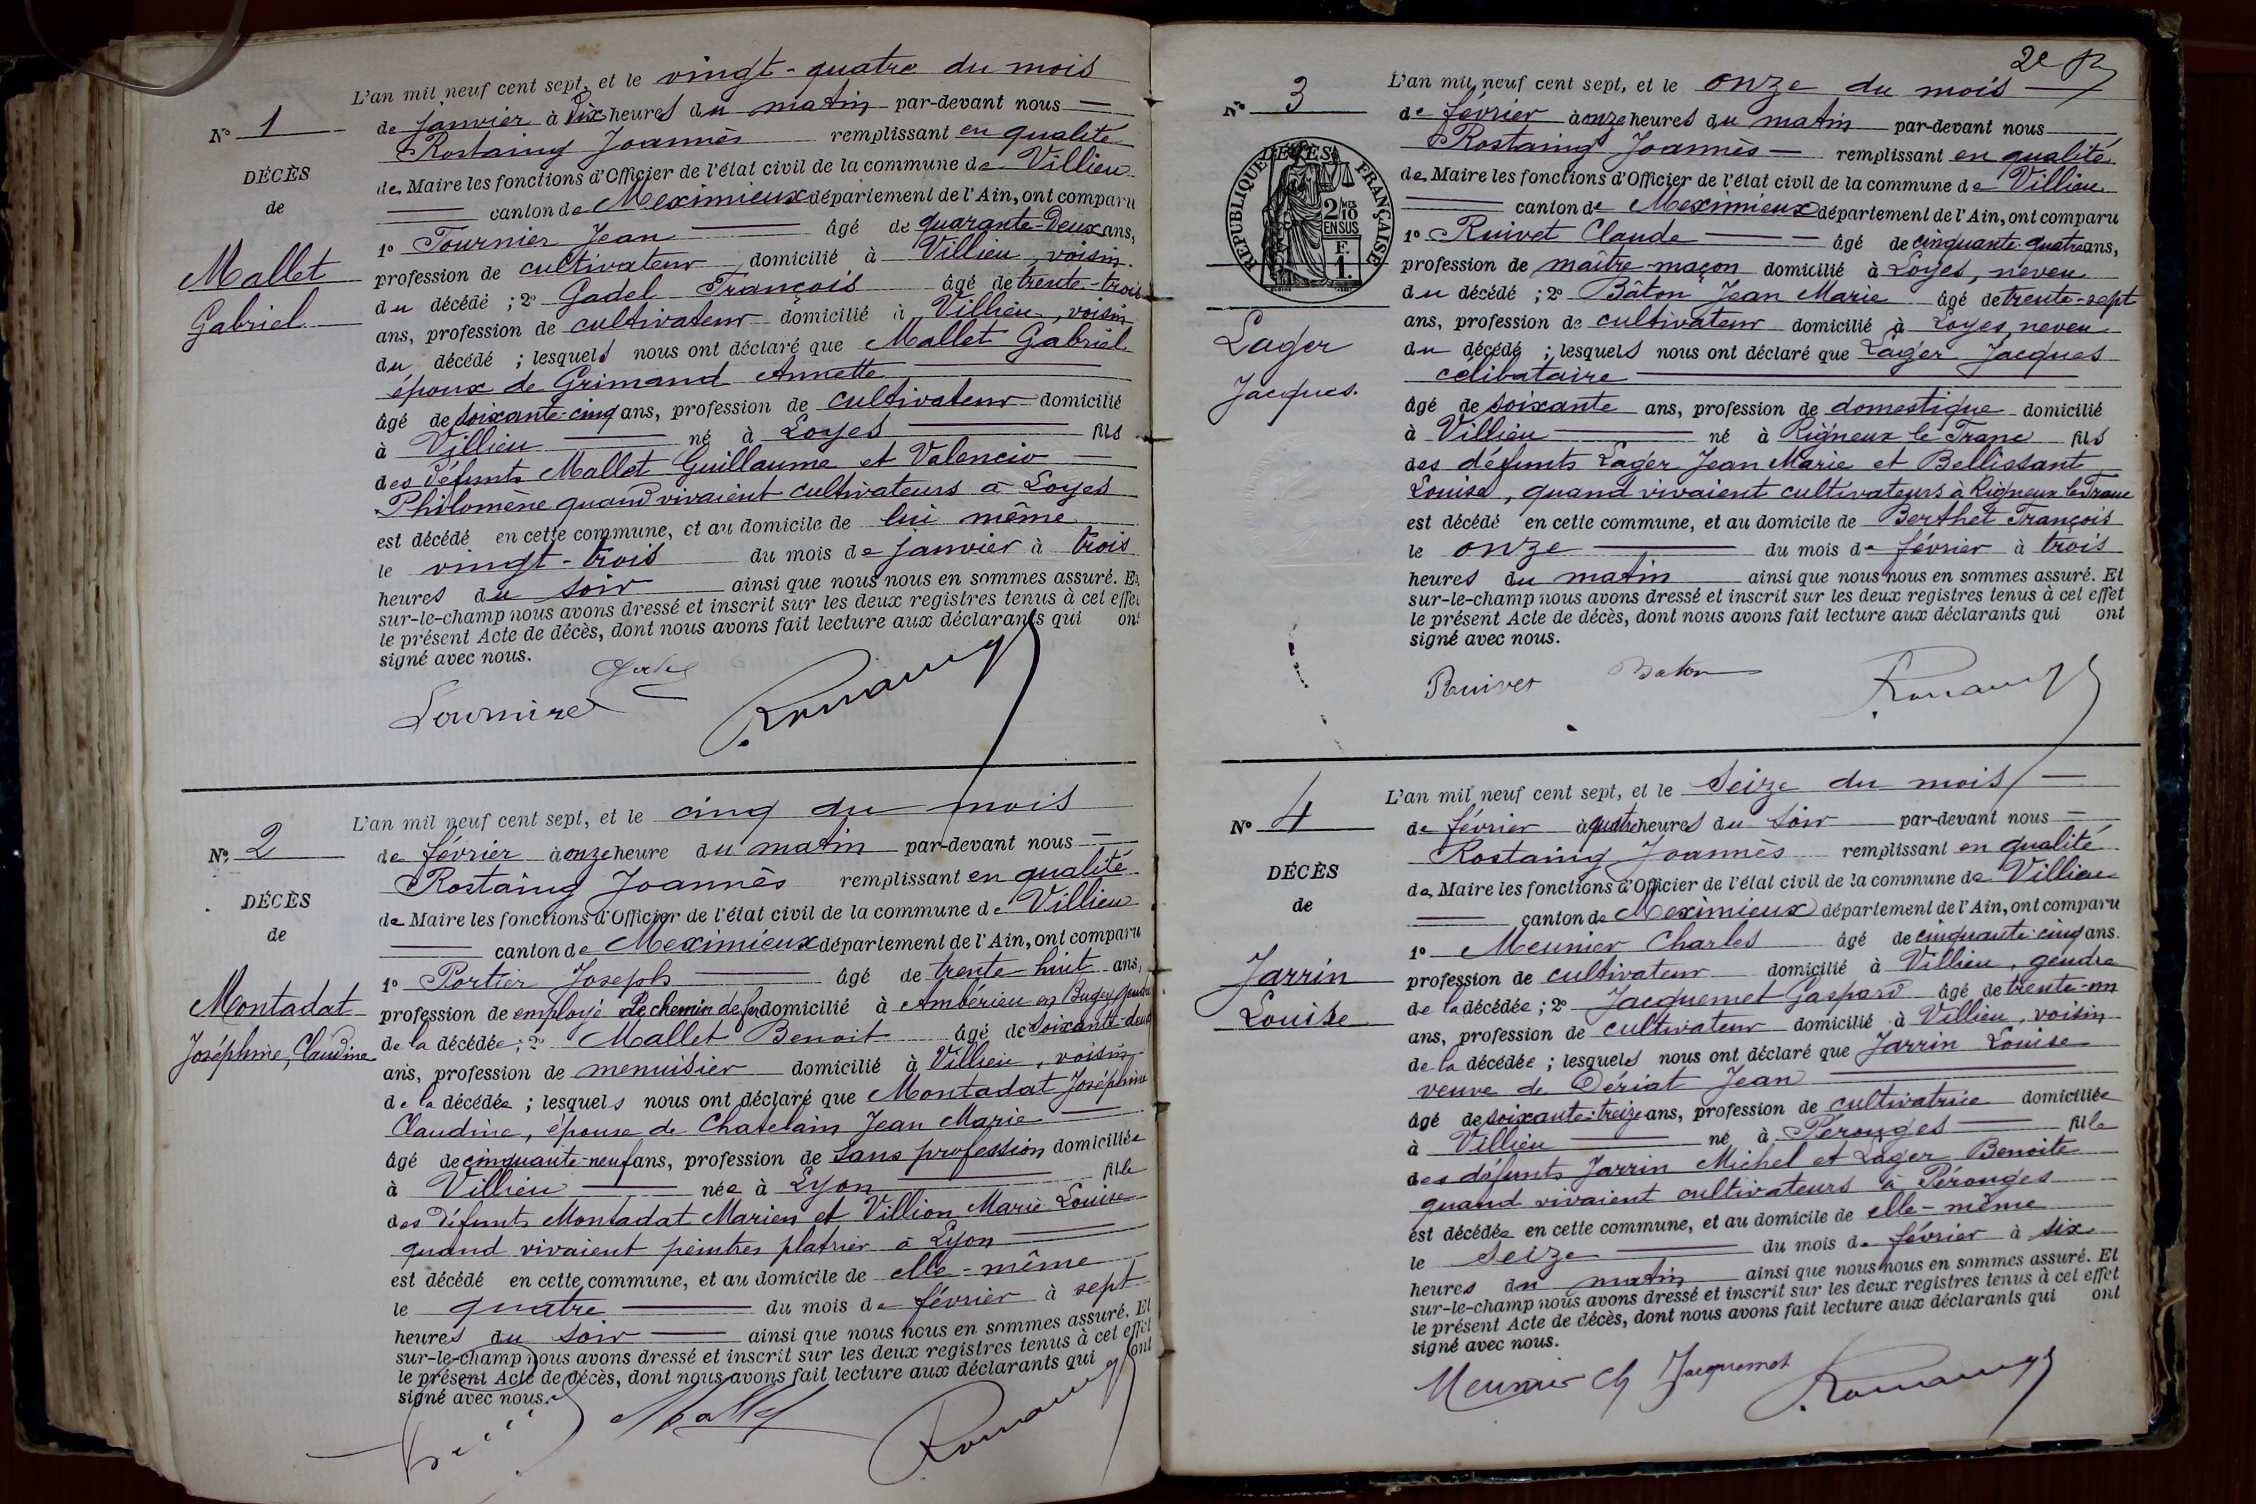 L'an mil neuf cent sept, et le vingt-quatre du mois
N° 1
de janvier à dix heures du matin par-devant nous
Rostaing Joannès remplissant en qualité
DÉCÈS
de Maire les fonctions d'Officier de l'état civil de la commune de Villieu
de
canton de Meximieux département de l'Ain, ont comparu
1° Fournier Jean âgé de quarante-deux ans,
Mallet
profession de cultivateur domicilié à Villieu, voisin
du décédé ; 2° Gadel François âgé de trente-trois
Gabriel
ans, profession de cultivateur domicilié à Villieu, voisin
du décédé ; lesquels nous ont déclaré que Mallet Gabriel
époux de Grimand Annette
âgé de soixante-cinq ans, profession de cultivateur domicilié
à Villieu né à Loyes fils
des défunts Mallet Guillaume et Valencio
Philomène quand vivaient cultivateurs à Loyes
est décédé en cette commune, et au domicile de lui même
le vingt-trois du mois de janvier à trois
heures du soir ainsi que nous nous en sommes assuré. Et
sur-le-champ nous avons dressé et inscrit sur les deux registres tenus à cet effet
le présent Acte de décès, dont nous avons fait lecture aux déclarants qui ont
signé avec nous.
L'an mil neuf cent sept, et le cinq du mois
N° 2
de février à onze heure du matin par-devant nous
Rostaing Joannès remplissant en qualité
DÉCÈS
de Maire les fonctions d'Officier de l'état civil de la commune de Villieu
de
canton de Meximieux département de l'Ain, ont comparu
1° Portier Joseph âgé de trente huit ans,
Montadat
profession de employé de chemin de fer domicilié à Ambérieu en Bugey, gendre
de la décédée ; 2° Mallet Benoit âgé de soixante-deux
Joséphine, Claudine
ans, profession de menuisier domicilié à Villieu, voisin
de la décédée ; lesquels nous ont déclaré que Montadat Joséphine
Claudine, épouse de Chatelain Jean Marie
âgé de cinquante-neuf ans, profession de sans profession domiciliée
à Villieu née à Lyon fille
des défunts Montadat Marien et Villion Marie Louise
quand vivaient peintres platrier à Lyon
est décédé en cette commune, et au domicile de elle-même
le quatre du mois de février à sept
heures du soir ainsi que nous nous en sommes assuré. Et
sur-le-champ nous avons dressé et inscrit sur les deux registres tenus à cet effet
le présent Acte de décès, dont nous avons fait lecture aux déclarants qui ont
signé avec nous.
Mallet
L'an mil neuf cent sept, et le onze du mois
N° 3
de février à onze heures du matin par-devant nous
Rostaing Joannès remplissant en qualité
RÉPUBLIQUE FRANÇAISE
2/10 EN SUS
F. 1.
de Maire les fonctions d'Officier de l'état civil de la commune de Villieu
canton de Meximieux département de l'Ain, ont comparu
1° Ruivet Claude âgé de cinquante-quatre ans,
profession de maître-maçon domicilié à Loyes, neveu
du décédé ; 2° Bâton Jean Marie âgé de trente-sept
ans, profession de cultivateur domicilié à Loyes, neveu
Lager
du décédé ; lesquels nous ont déclaré que Lager Jacques
célibataire
Jacques.
âgé de soixante ans, profession de domestique domicilié
à Villieu né à Rigneux le Franc fils
des défunts Lager Jean Marie et Bellissant
Louise, quand vivaient cultivateurs à Rigneux le Franc
est décédé en cette commune, et au domicile de Berthet François
le onze du mois de février à trois
heures du matin ainsi que nous nous en sommes assuré. Et
sur-le-champ nous avons dressé et inscrit sur les deux registres tenus à cet effet
le présent Acte de décès, dont nous avons fait lecture aux déclarants qui ont
signé avec nous.
Ruivet Baton
L'an mil neuf cent sept, et le seize du mois
N° 4
de février à quatre heures du soir par-devant nous
Rostaing Joannès remplissant en qualité
DÉCÈS
de Maire les fonctions d'Officier de l'état civil de la commune de Villieu
de
canton de Meximieux département de l'Ain, ont comparu
1° Meunier Charles âgé de cinquante-cinq ans.
Jarrin
profession de cultivateur domicilié à Villieu, gendre
de la décédée ; 2° Jacquemet Gaspard âgé de trente-un
Louise
ans, profession de cultivateur domicilié à Villieu, voisin
de la décédée ; lesquels nous ont déclaré que Jarrin Louise
veuve de Dériat Jean
âgé de soixante-treize ans, profession de cultivatrice domiciliée
à Villieu né à Pérouges fille
des défunts Jarrin Michel et Lager Benoite
quand vivaient cultivateurs à Pérouges
est décédée en cette commune, et au domicile de elle-même
le seize du mois de février à six
heures du matin ainsi que nous nous en sommes assuré. Et
sur-le-champ nous avons dressé et inscrit sur les deux registres tenus à cet effet
le présent Acte de décès, dont nous avons fait lecture aux déclarants qui ont
signé avec nous.
Meunier Ch Jacquemet